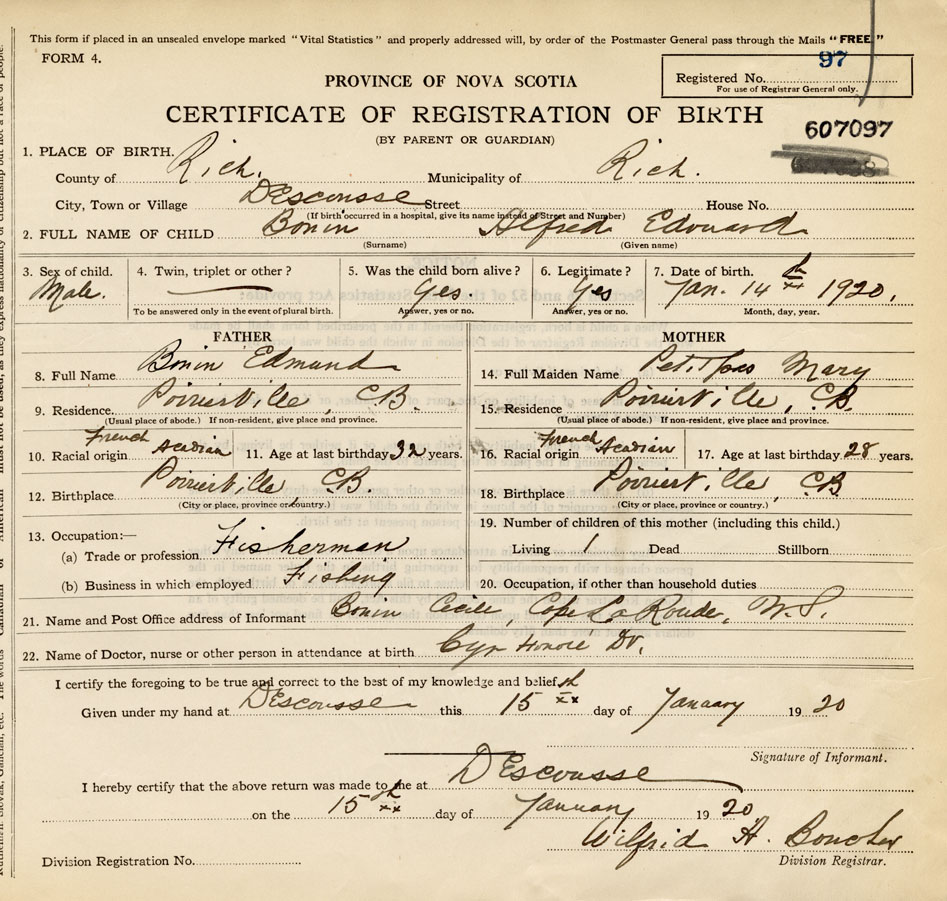 This form if placed in an unsealed envelope marked "Vital Statistics" and properly addressed will, by order of the Postmaster General pass through the Mails "FREE."
FORM 4.
97
Registered No.
For use of Registrar General only.
PROVINCE OF NOVA SCOTIA
CERTIFICATE OF REGISTRATION OF BIRTH
(BY PARENT OR GUARDIAN)
607097
1. PLACE OF BIRTH.
County of Rich. Municipality of Rich.
City, Town or Village DEscousse Street House No.
(If birth occurred in a hospital, give its name instead of Street and Number)
2. FULL NAME OF CHILD Bonin Alfred Edouard
(Surname) (Given name)
3. Sex of child. Male.
4. Twin, triplet or other? —
To be answered only in the event of plural birth.
5. Was the child born alive? Yes.
Answer, yes or no.
6. Legitimate? Yes
Answer, yes or no.
7. Date of birth. Jan. 14th 1920.
Month, day, year.
FATHER
8. Full Name Bonin Edmund
9. Residence. Poirierville, C.B.
(Usual place of abode.) If non-resident, give place and province.
10. Racial origin French Acadian
11. Age at last birthday 32 years.
12. Birthplace Poirierville, C.B.
(City or place, province or country.)
13. Occupation:—
(a) Trade or profession Fisherman
(b) Business in which employed Fishing
MOTHER
14. Full Maiden Name Petitpas Mary
15. Residence Poirierville, C.B.
(Usual place of abode.) If non-resident, give place and province.
16. Racial origin French Acadian
17. Age at last birthday 28 years.
18. Birthplace Poirierville, C.B.
(City or place, province or country.)
19. Number of children of this mother (including this child.)
Living 1 Dead Stillborn
20. Occupation, if other than household duties
21. Name and Post Office address of Informant Bonin Cecile, Cape La Ronde, N.S.
22. Name of Doctor, nurse or other person in attendance at birth Cyr Honoré Dr.
I certify the foregoing to be true and correct to the best of my knowledge and belief.
Given under my hand at DEscousse this 15th day of January 1920
Signature of Informant.
I hereby certify that the above return was made to me at DEscousse
on the 15th day of January 1920
Wilfrid A. Boucher
Division Registration No. Division Registrar.